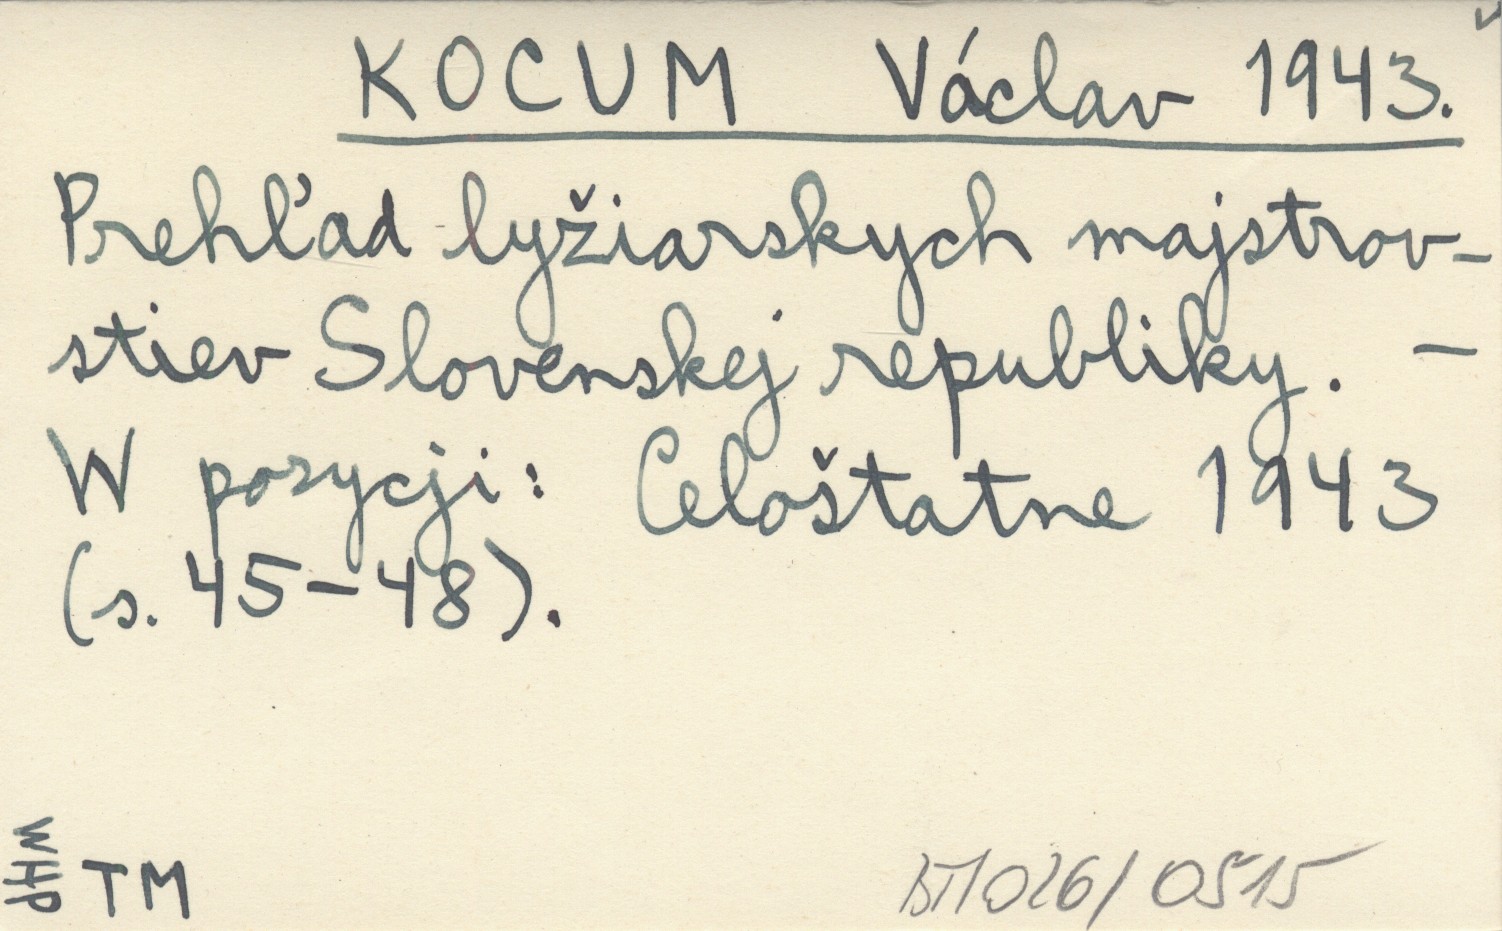 KOCUM Václav 1943.
Prehľad lyžiarskych majstrov-
stiev Slovenskej republiky. –
W pozycji: Celoštatne 1943
(s. 45–48).
WHP
TM
BTM 026/0515